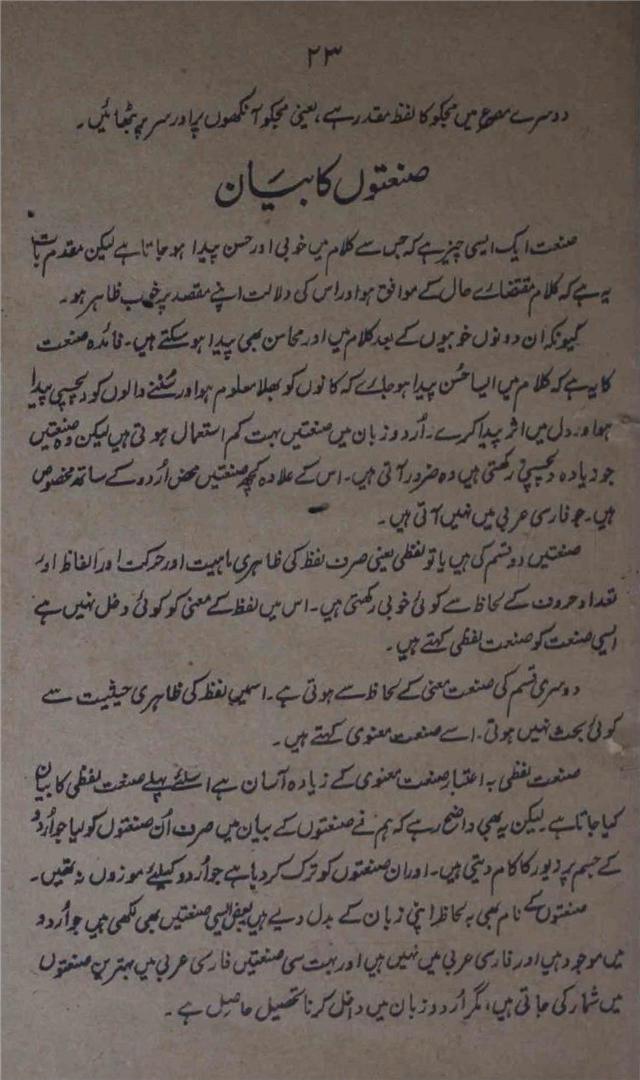 ۲۳
دوسرے مصرع میں مجکو کا لفظ مقدر ہے، یعنی مجکو آنکھوں پر اور سر پر بٹھائیں۔
صنعتوں کا بیان
صنعت ایک ایسی چیز ہے کہ جس سے کلام میں خوبی اور حسن پیدا ہو جاتا ہے لیکن مقدم بات
یہ ہے کہ کلام مقتضائے حال کے موافق ہو اور اس کی دلالت اپنے مقصد پر خوب ظاہر ہو۔
کیونکہ ان دونوں خوبیوں کے بعد کلام میں اور محاسن بھی پیدا ہو سکتے ہیں۔ فائدہ صنعت
کا یہ ہے کہ کلام میں ایسا حُسن پیدا ہو جائے کہ کانوں کو بھلا معلوم ہو اور سُننے والوں کو دلچسپی پیدا
ہو اور دل میں اثر پیدا کرے۔ اُردو زبان میں صنعتیں بہت کم استعمال ہوتی ہیں لیکن وہ صنعتیں
جو زیادہ دلچسپی رکھتی ہیں وہ ضرور آتی ہیں۔ اس کے علاوہ کچھ صنعتیں محض اُردو کے ساتھ مخصوص
ہیں۔ جو فارسی عربی میں نہیں آتی ہیں۔
صنعتیں دو قسم کی ہیں یا تو لفظی یعنی صرف لفظ کی ظاہری ماہیت اور حرکت اور الفاظ اور
تعداد حروف کے لحاظ سے کوئی خوبی رکھتی ہیں۔ اس میں لفظ کے معنی کو کوئی دخل نہیں ہے
ایسی صنعت کو صنعت لفظی کہتے ہیں۔
دوسری قسم کی صنعت معنی کے لحاظ سے ہوتی ہے۔ اسمیں لفظ کی ظاہری حیثیت سے
کوئی بحث نہیں ہوتی۔ اسے صنعت معنوی کہتے ہیں۔
صنعت لفظی بہ اعتبار صنعت معنوی کے زیادہ آسان ہے اسلئے پہلے صنعت لفظی کا بیان
کیا جاتا ہے۔ لیکن یہ بھی واضح رہے کہ ہم نے صنعتوں کے بیان میں صرف اُن صنعتوں کو لیا جو اُردو
کے جسم پر زیور کا کام دیتی ہیں۔ اور ان صنعتوں کو ترک کر دیا ہے جو اُردو کیلئے موزوں نہ تھیں۔
صنعتوں کے نام بھی بہ لحاظ اپنی زبان کے بدل دیے ہیں بعض ایسی صنعتیں بھی لکھی ہیں جو اُردو
میں موجود ہیں اور فارسی عربی میں نہیں ہیں اور بہت سی صنعتیں فارسی عربی میں بہترین صنعتوں
میں شمار کی جاتی ہیں، مگر اُردو زبان میں داخل کرنا تحصیل حاصل ہے۔